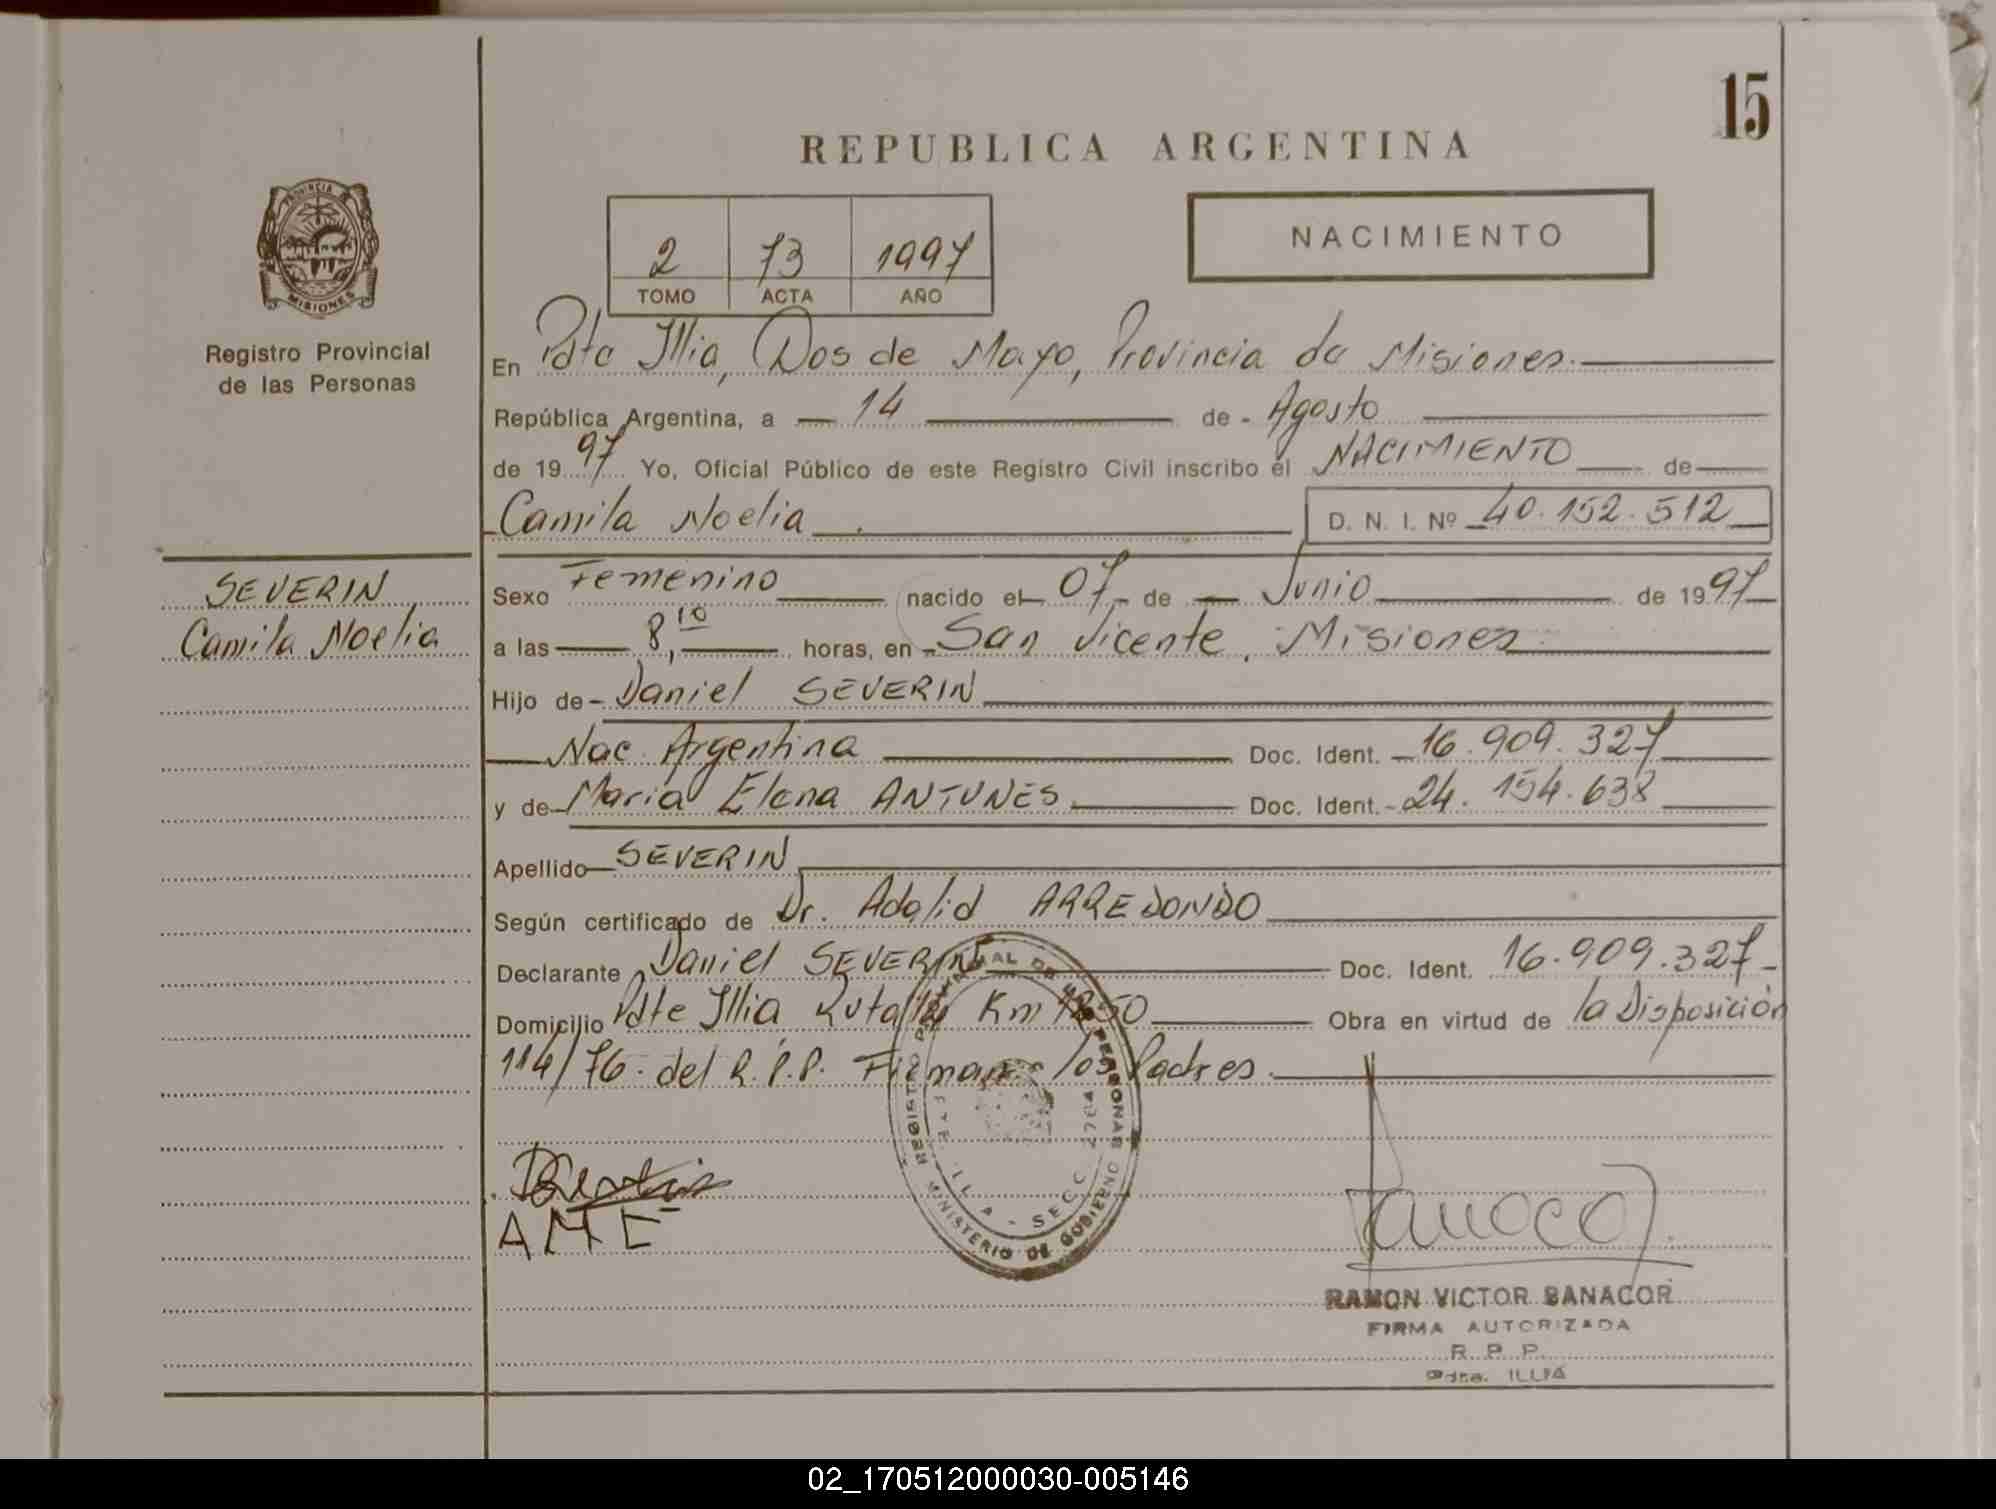 15
REPUBLICA ARGENTINA
PROVINCIA
MISIONES
Registro Provincial
de las Personas
2 73 1997
TOMO ACTA AÑO
NACIMIENTO
En Pdte Illia, Dos de Mayo, Provincia de Misiones.
República Argentina, a 14 de Agosto
de 1997 Yo, Oficial Público de este Registro Civil inscribo el NACIMIENTO de
Camila Noelia D. N. I. Nº 40.152.512
SEVERIN
Camila Noelia
Sexo Femenino nacido el 07 de Junio de 1997
a las 8,10 horas, en San Vicente, Misiones
Hijo de Daniel SEVERIN
Nac. Argentina Doc. Ident. 16.909.327
y de Maria Elena ANTUNES Doc. Ident. 24.154.638
Apellido SEVERIN
Según certificado de Dr. Adalid ARREDONDO
Declarante Daniel SEVERIN Doc. Ident. 16.909.327
Domicilio Pdte Illia Ruta Km Obra en virtud de la Disposición
114/76 del R.P.P. Firman los Padres.
REGISTRO PROVINCIAL DE LAS PERSONAS
MINISTERIO DE GOBIERNO
SECC. 2764
AME
RAMON VICTOR BANACOR
FIRMA AUTORIZADA
R. P. P.
Pdte. ILLIA
02_170512000030-005146